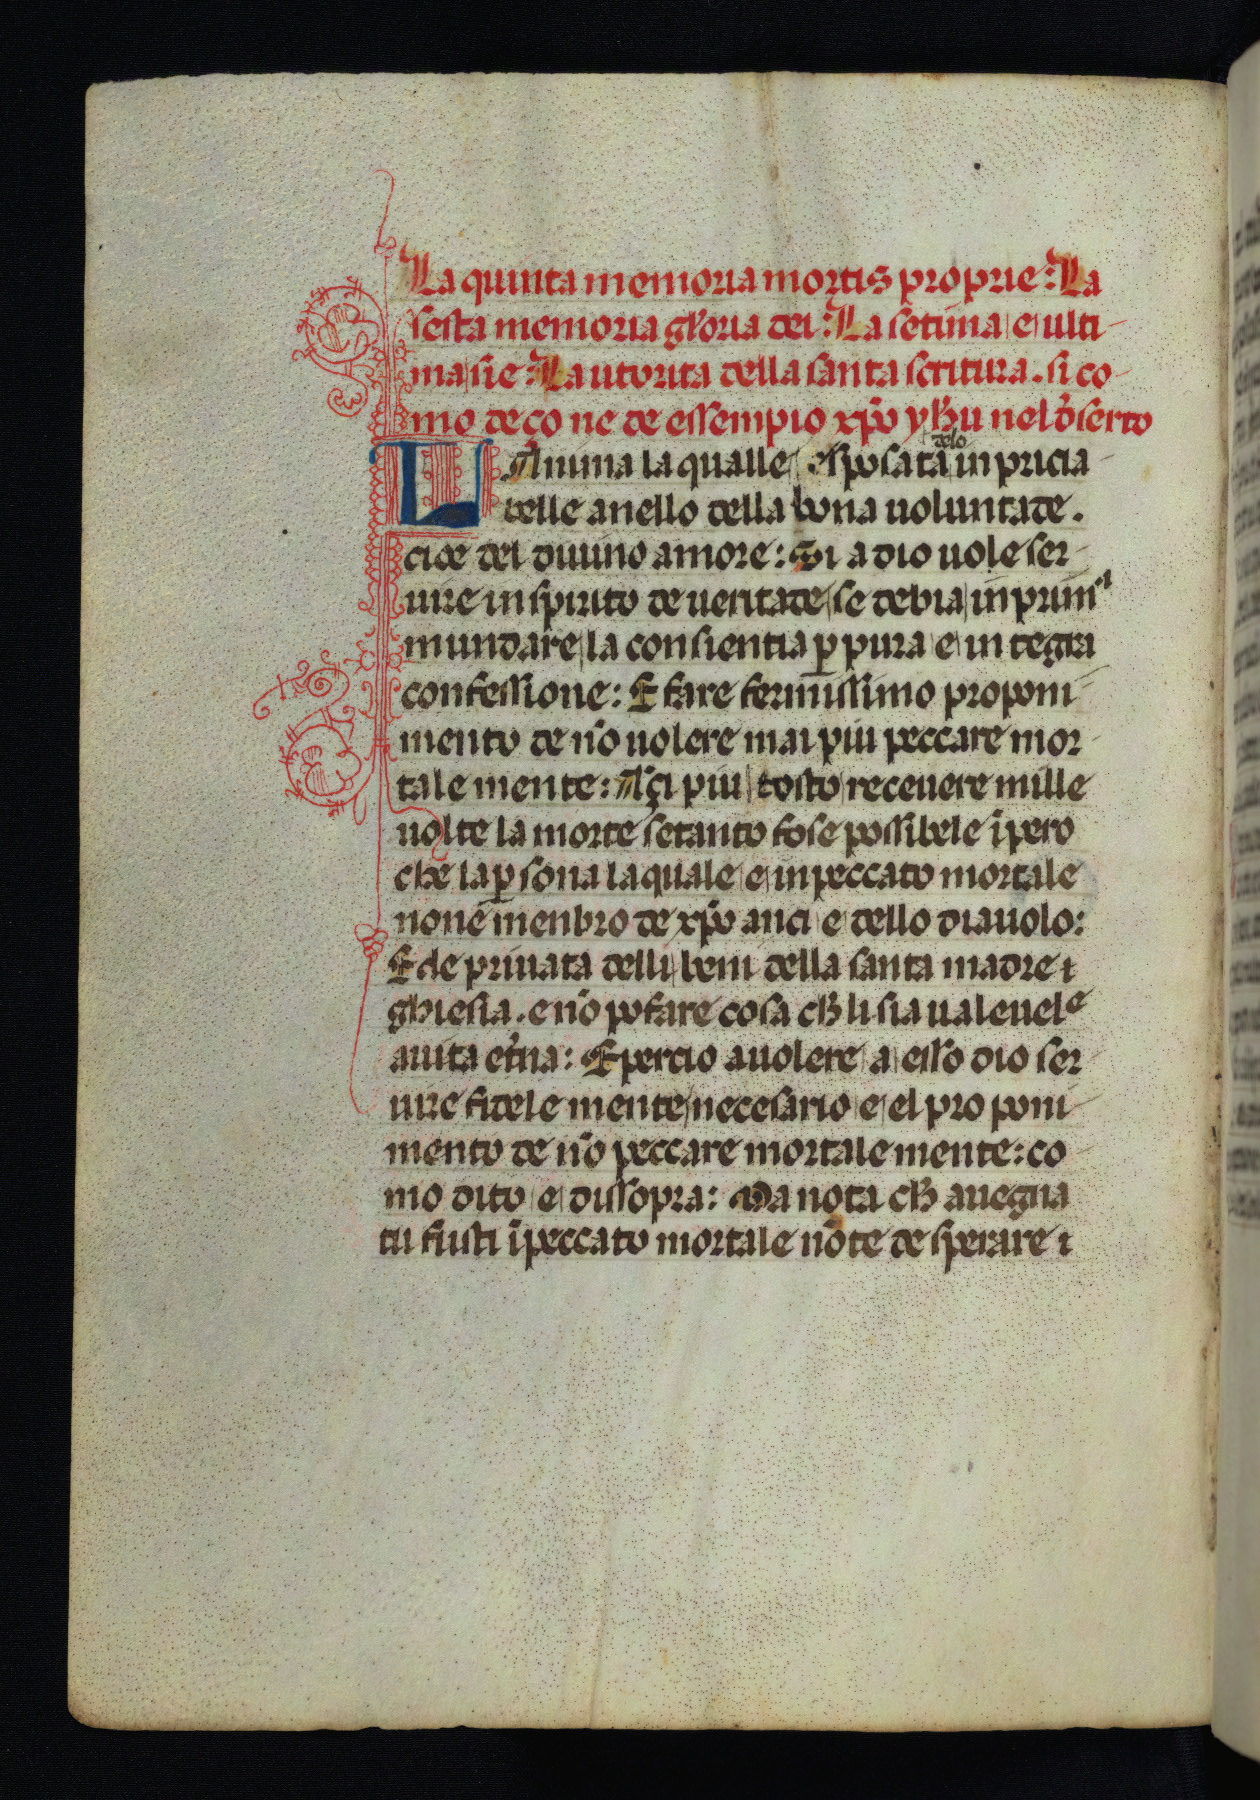 La quinta memoria mortis proprie: La
sesta memoria gl'oria dei: La setima e ulti-
ma sie: La utorita della santa scritura. si co-
mo de ço ne de essempio xpo yhu nel d'serto
delo
LAnima la qualle esposata in pricia
delle anello della bona uoluntade.
cioe del diuino amore: Si a dio uole ser-
uire in spirito de ueritade se debia in prima
mundare la consientia per pura e in tegra
confessione: E fare fermissimo proponi-
mento de nō uolere mai piu peccare mor-
tale mente: Açi piu tosto receuere mille
uolte la morte se tanto fose possibele īpero
che la ꝑsona la quale e in peccato mortale
none menbro de xpo anci e dello diauolo:
E de priuata delli beni della santa madre i
ghiesia. e nō po fare cosa ch li sia ualeuele
a uita et'na: E percio a uolere a esso dio ser-
uire fidele mente necesario e el pro poni-
mento de nō peccare mortale mente: co
mo dito e dissopra: Ma nota ch auegna
tu fusti ī peccato mortale nō te de sperare i